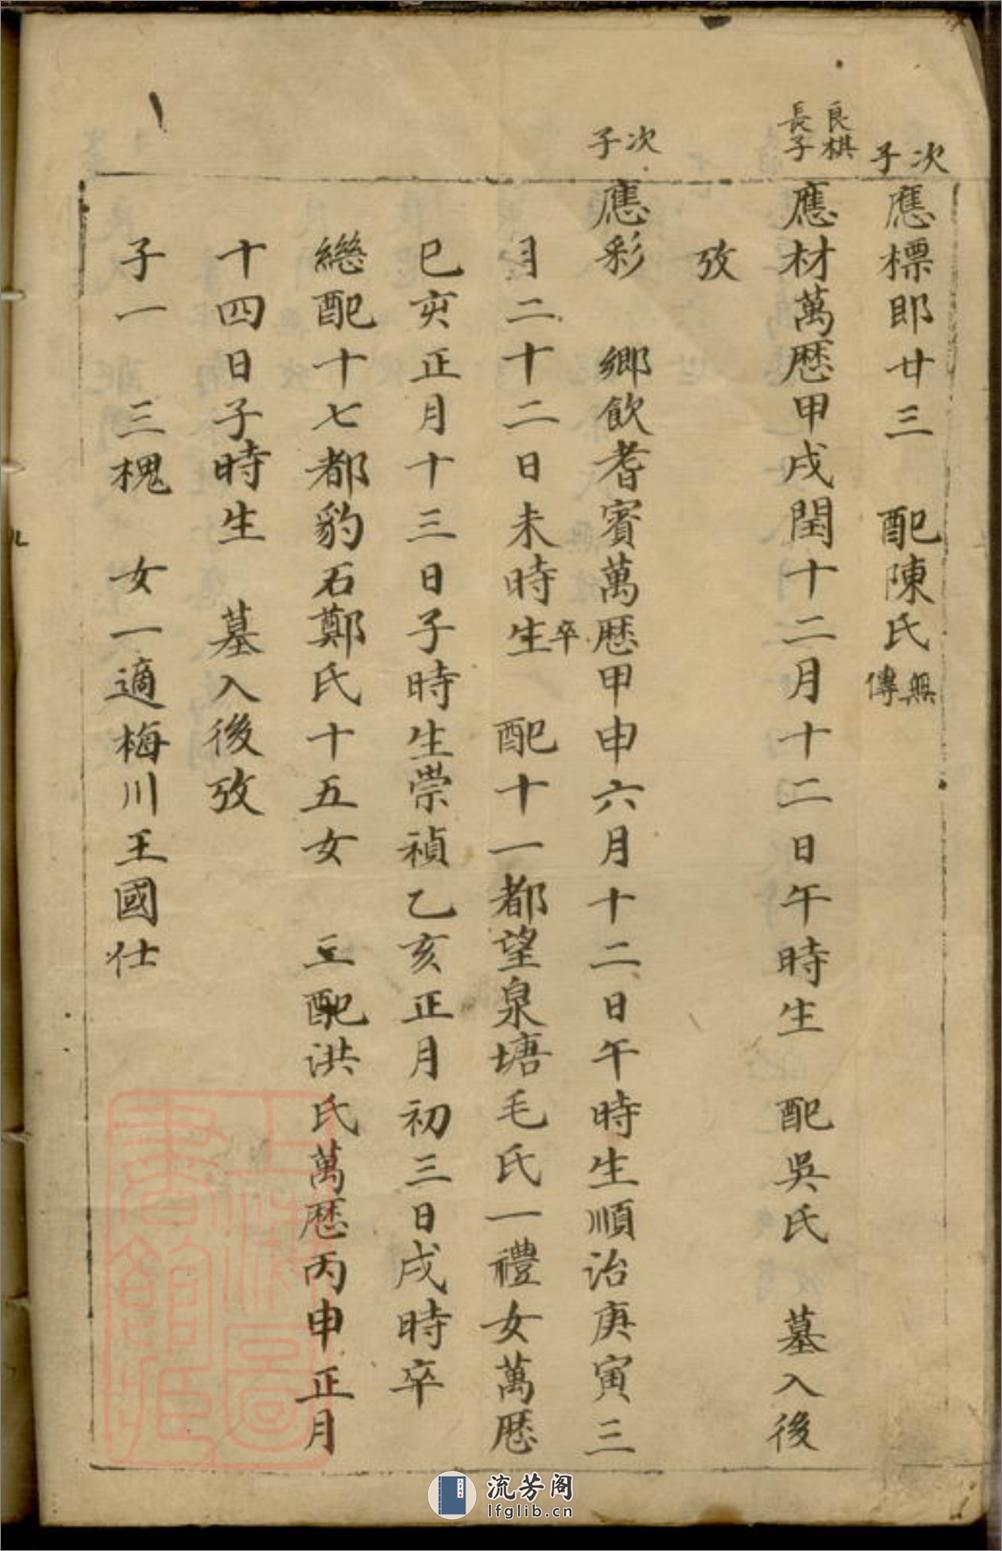 次子
應標郎廿三　配陳氏無傳
良棋長子
應材萬厯甲戌閏十二月十二日午時生　配吳氏　墓入後
攷
次子
應彩　鄉飲耆賓萬厯甲申六月十二日午時生順治庚寅三
月二十二日未時生卒　配十一都望泉塘毛氏一禮女萬厯
巳亥正月十三日子時生崇禎乙亥正月初三日戌時卒
繼配十七都豹石鄭氏十五女　三配洪氏萬厯丙申正月
十四日子時生　墓入後攷
子一　三槐　女一適梅川王國仕
上海圖書館藏
流芳阁
lfglib.cn